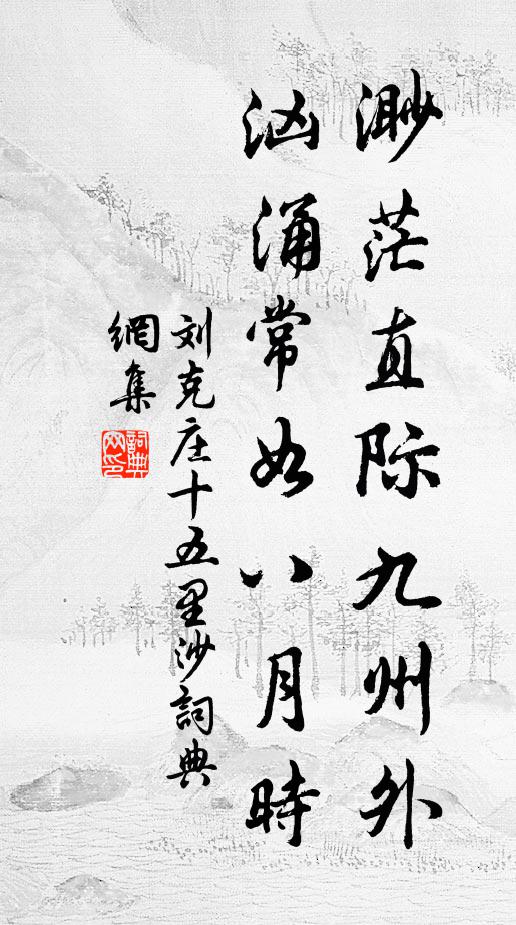 渺茫直际九州外
汹涌常如八月時
刘克庄十五里沙詞典
網集
詞典
网印